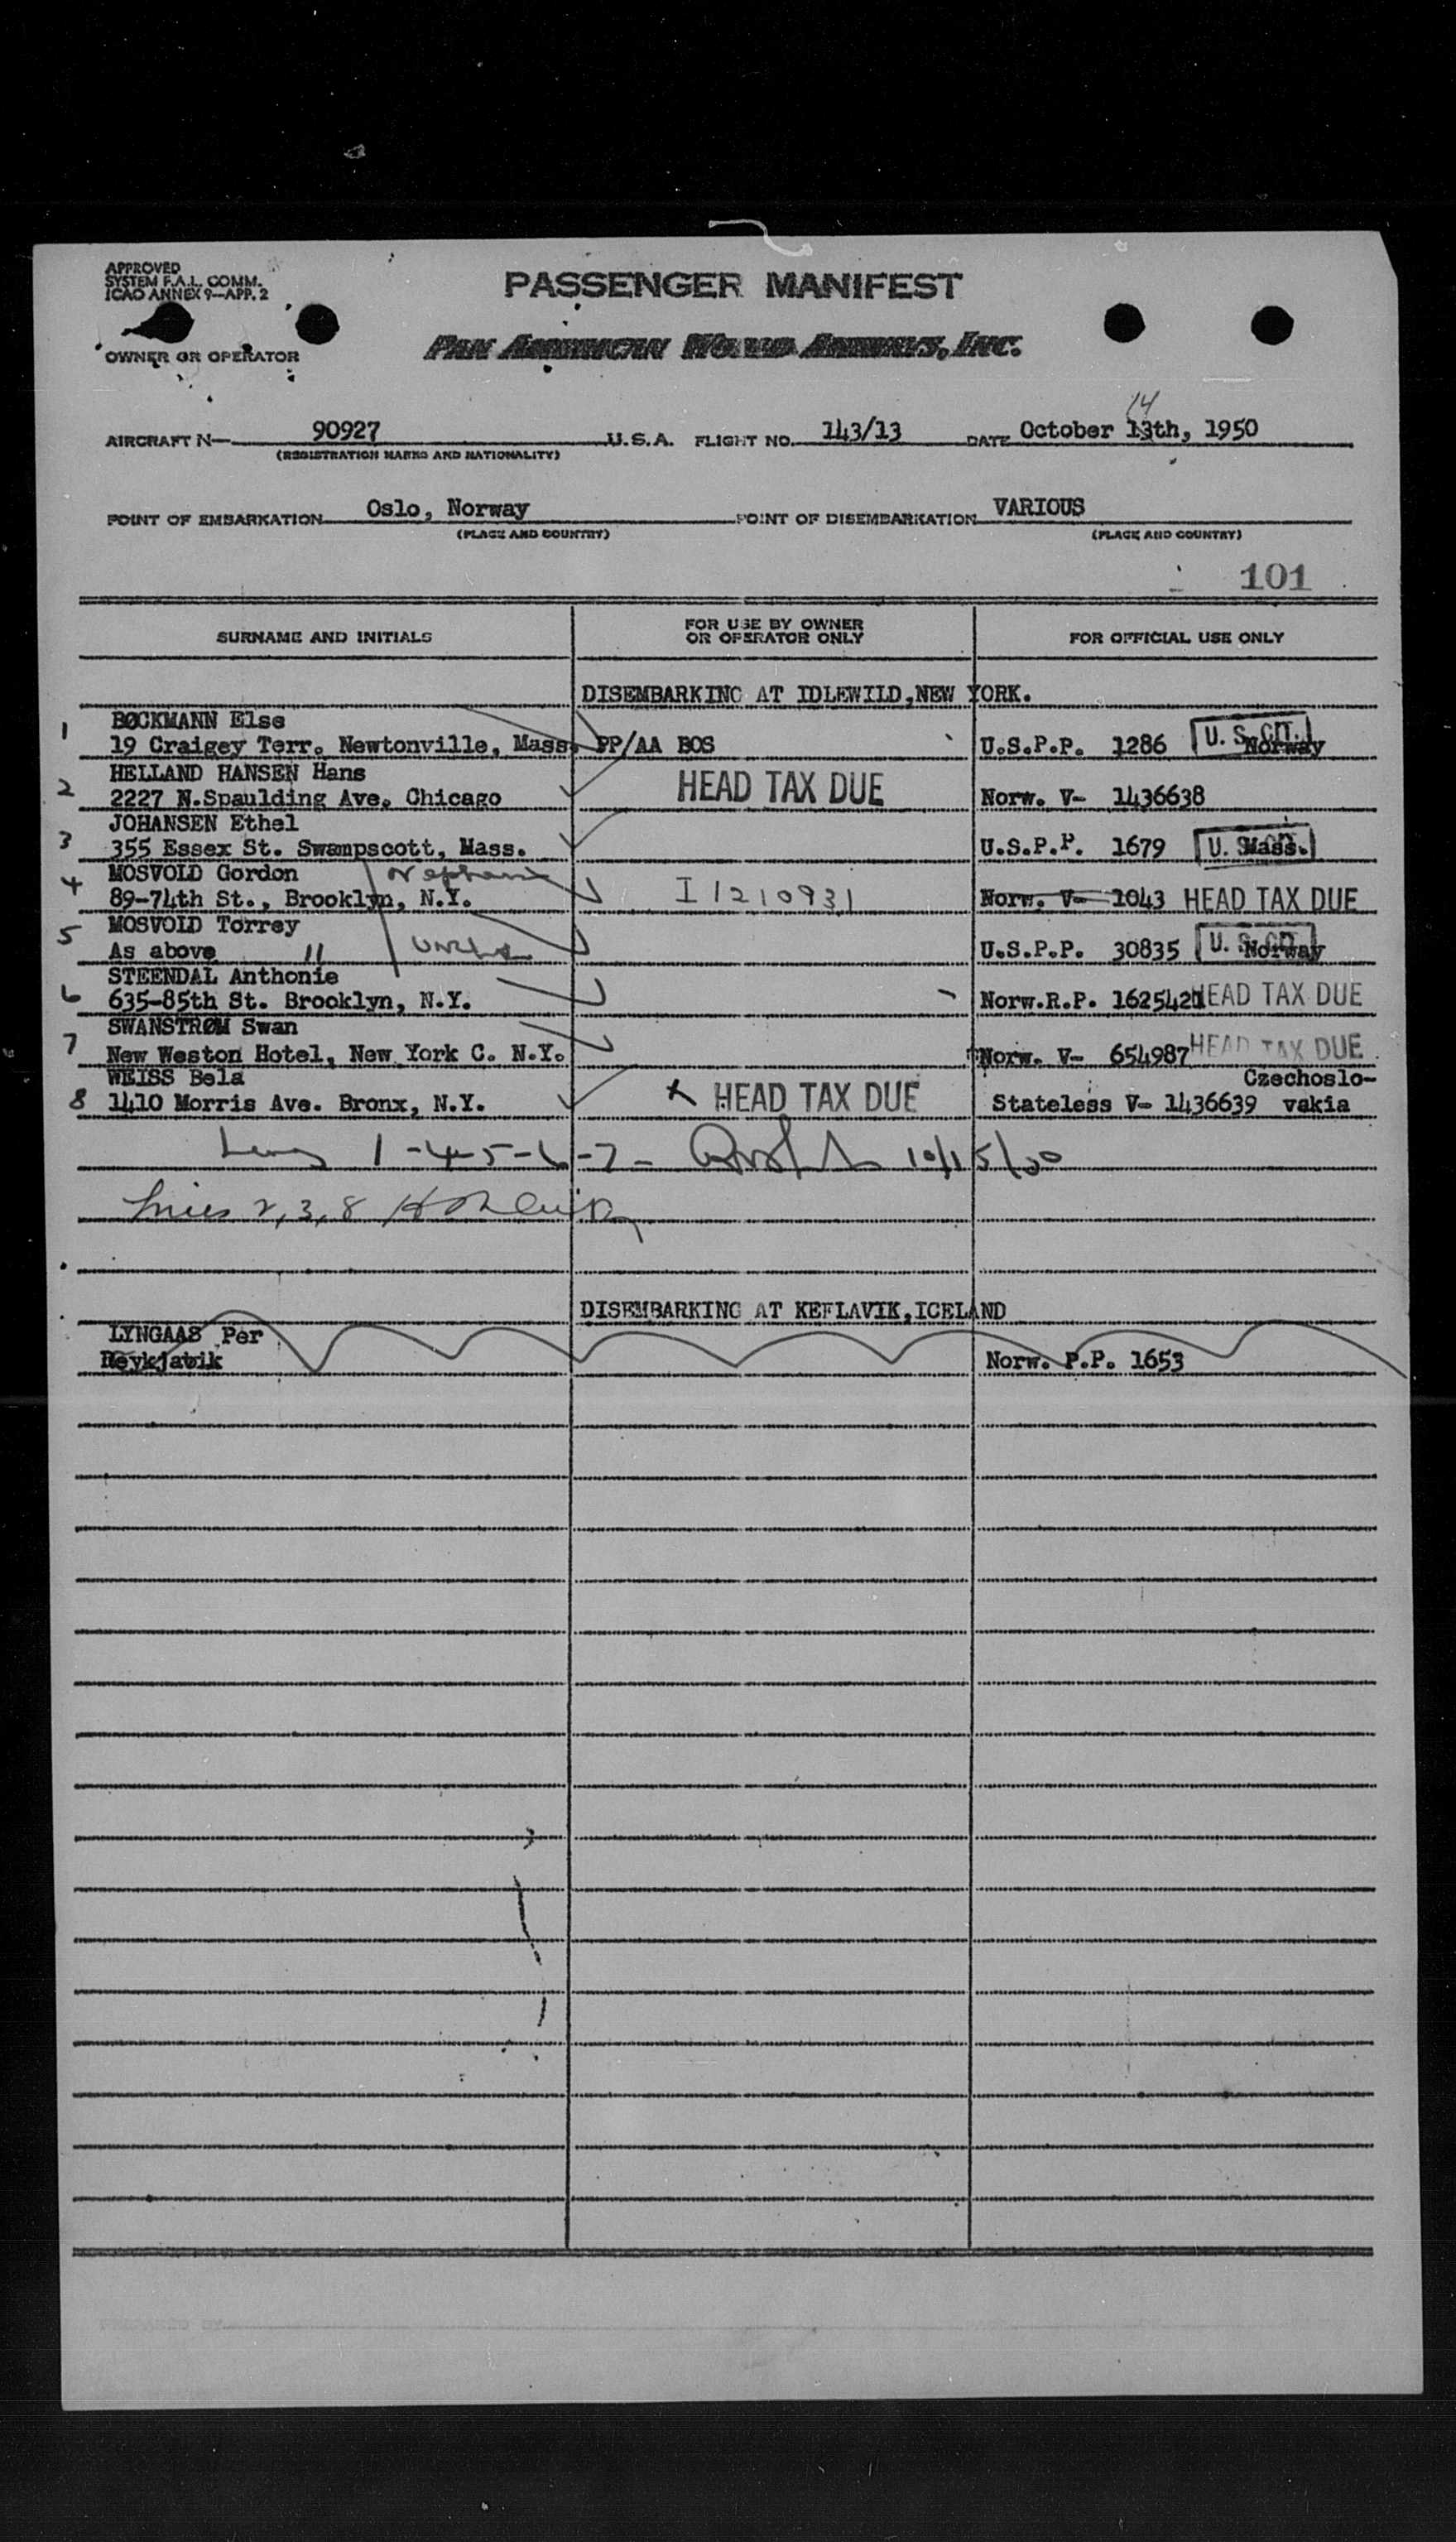 APPROVED
SYSTEM F.A.L. COMM.
ICAO ANNEX 9—APP. 2
PASSENGER MANIFEST
OWNER OR OPERATOR
PAN AMERICAN WORLD AIRWAYS, INC.
14
AIRCRAFT N— 90927 U.S.A. FLIGHT NO. 143/13 DATE October 13th, 1950
(REGISTRATION MARKS AND NATIONALITY)
POINT OF EMBARKATION Oslo, Norway POINT OF DISEMBARKATION VARIOUS
(PLACE AND COUNTRY) (PLACE AND COUNTRY)
101
SURNAME AND INITIALS FOR USE BY OWNER OR OPERATOR ONLY FOR OFFICIAL USE ONLY
DISEMBARKING AT IDLEWILD,NEW YORK.
1 BØCKMANN Else
19 Craigey Terr. Newtonville, Mass. PP/AA BOS U.S.P.P. 1286 U. S. CIT. Norway
2 HELLAND HANSEN Hans
2227 N.Spaulding Ave. Chicago HEAD TAX DUE Norw. V- 1436638
3 JOHANSEN Ethel
355 Essex St. Swampscott, Mass. U.S.P.P. 1679 U. S. Mass.
4 MOSVOLD Gordon
89-74th St., Brooklyn, N.Y. I 1210931 Norw. V- 1043 HEAD TAX DUE
5 MOSVOLD Torrey
As above " Uncle U.S.P.P. 30835 U. S. CIT. Norway
6 STEENDAL Anthonie
635-85th St. Brooklyn, N.Y. Norw.R.P. 162542 HEAD TAX DUE
7 SWANSTRØM Swan
New Weston Hotel, New York C. N.Y. Norw. V- 654987 HEAD TAX DUE
8 WEISS Bela Czechoslo-
1410 Morris Ave. Bronx, N.Y. HEAD TAX DUE Stateless V- 1436639 vakia
1-4-5-6-7- 10/15/50
Lines 2,3,8
DISEMBARKING AT KEFLAVIK,ICELAND
LYNGAAS Per
Reykjavik Norw. P.P. 1653